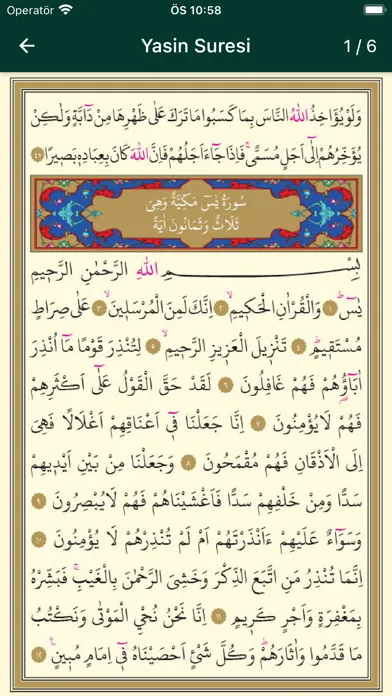 Operatör ÖS 10:58
Yasin Suresi 1 / 6
وَلَوْ يُؤَاخِذُ اللّٰهُ النَّاسَ بِمَا كَسَبُوا مَا تَرَكَ عَلٰى ظَهْرِهَا مِنْ دَٓابَّةٍ وَلٰكِنْ
يُؤَخِّرُهُمْ اِلٰٓى اَجَلٍ مُسَمًّىۚ فَاِذَا جَٓاءَ اَجَلُهُمْ فَاِنَّ اللّٰهَ كَانَ بِعِبَادِهٖ بَصٖيرًا ﴿٤٥﴾
سُورَةُ يٰسٓ مَكِّيَّةٌ وَهِيَ
ثَلَاثٌ وَثَمَانُونَ اٰيَةً
بِسْمِ اللّٰهِ الرَّحْمٰنِ الرَّحٖيمِ
يٰسٓۚ ﴿١﴾ وَالْقُرْاٰنِ الْحَكٖيمِۙ ﴿٢﴾ اِنَّكَ لَمِنَ الْمُرْسَلٖينَۙ ﴿٣﴾ عَلٰى صِرَاطٍ
مُسْتَقٖيمٍۜ ﴿٤﴾ تَنْزٖيلَ الْعَزٖيزِ الرَّحٖيمِۙ ﴿٥﴾ لِتُنْذِرَ قَوْمًا مَٓا اُنْذِرَ
اٰبَٓاؤُ۬هُمْ فَهُمْ غَافِلُونَ ﴿٦﴾ لَقَدْ حَقَّ الْقَوْلُ عَلٰٓى اَكْثَرِهِمْ
فَهُمْ لَا يُؤْمِنُونَ ﴿٧﴾ اِنَّا جَعَلْنَا فٖٓي اَعْنَاقِهِمْ اَغْلَالًا فَهِيَ
اِلَى الْاَذْقَانِ فَهُمْ مُقْمَحُونَ ﴿٨﴾ وَجَعَلْنَا مِنْ بَيْنِ اَيْدٖيهِمْ
سَدًّا وَمِنْ خَلْفِهِمْ سَدًّا فَاَغْشَيْنَاهُمْ فَهُمْ لَا يُبْصِرُونَ ﴿٩﴾
وَسَوَٓاءٌ عَلَيْهِمْ ءَاَنْذَرْتَهُمْ اَمْ لَمْ تُنْذِرْهُمْ لَا يُؤْمِنُونَ ﴿١٠﴾
اِنَّمَا تُنْذِرُ مَنِ اتَّبَعَ الذِّكْرَ وَخَشِيَ الرَّحْمٰنَ بِالْغَيْبِۚ فَبَشِّرْهُ
بِمَغْفِرَةٍ وَاَجْرٍ كَرٖيمٍ ﴿١١﴾ اِنَّا نَحْنُ نُحْيِ الْمَوْتٰى وَنَكْتُبُ
مَا قَدَّمُوا وَاٰثَارَهُمْۜ وَكُلَّ شَيْءٍ اَحْصَيْنَاهُ فٖٓي اِمَامٍ مُبٖينٍۚ ﴿١٢﴾